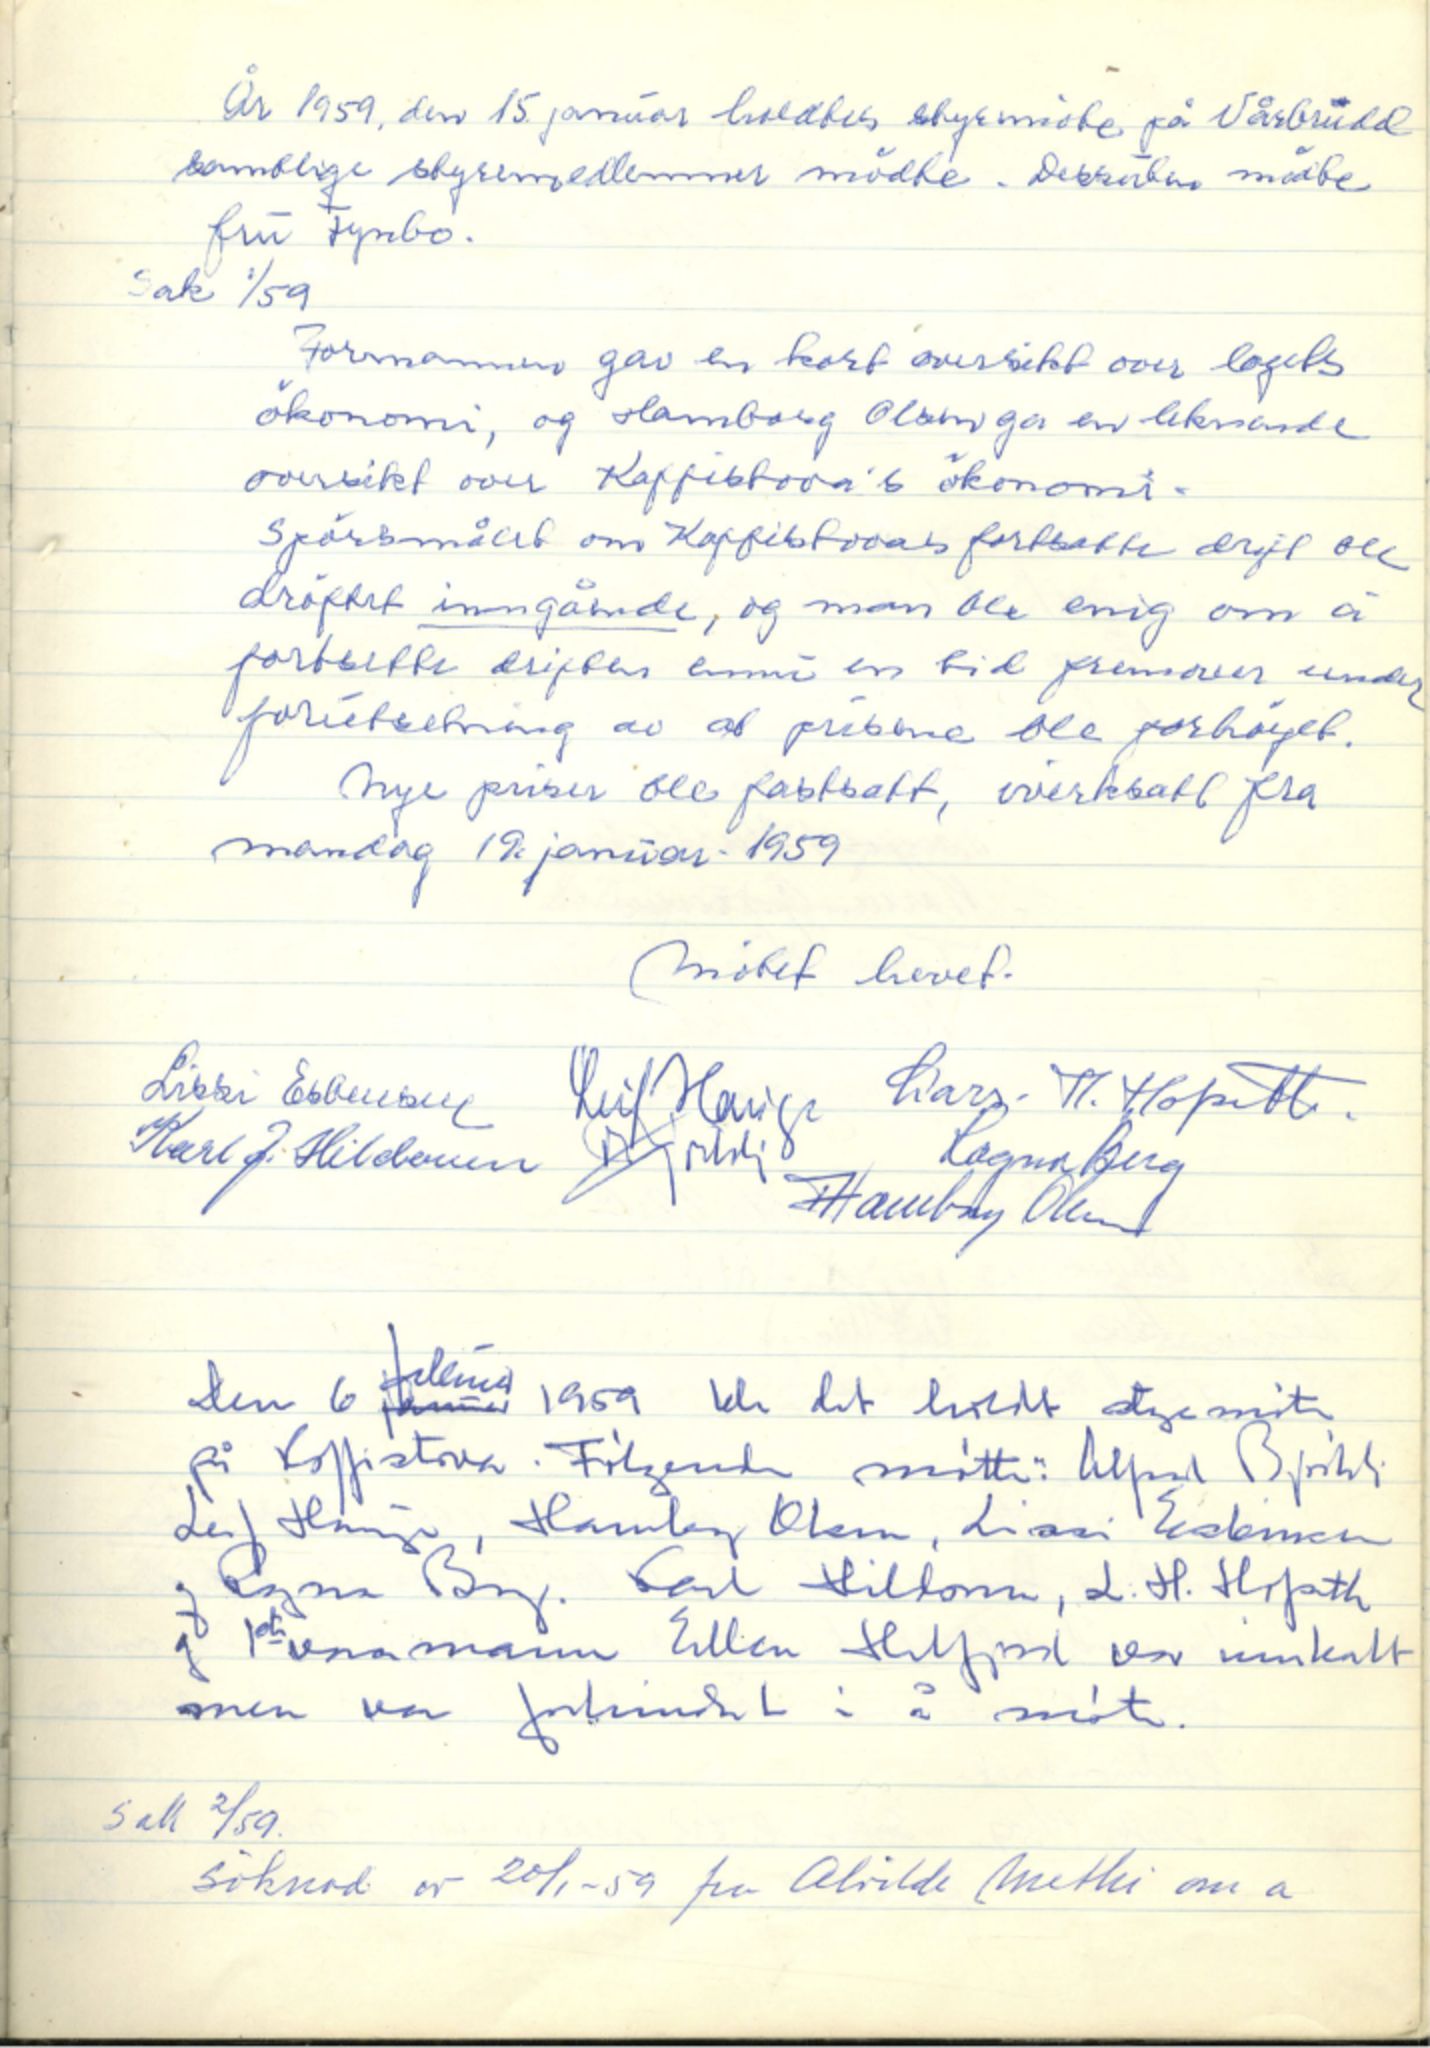 År 1959, den 15. januar holdtes styremøte på Vårbrudd
samtlige styremedlemmer mødte. Dessuten møtte
fru Fynbo.
Sak 1/59
Formannen gav en kort oversikt over lagets
økonomi, og Hamborg Olsen ga en liknande
oversikt over Kaffistova's økonomi.
Spørsmålet om Kaffistovas fortsatte drift ble
drøftet inngående, og man ble enig om å
fortsette driften ennu en tid fremover under
forutsetning av at prisene ble forhøyet.
Nye priser ble fastsatt, iverksatt fra
mandag 19. januar 1959
Møtet hevet.
Lissi Esbensen Leif Hauge Lars H. Hopseth.
Karl J. Hildonen Ragna Berg
Hamborg Olsen
Den 6 februar januar 1959 ble det holdt styremøte
på Koffistova. Følgende møtte: Alfred
Leif Hauge, Hamborg Olsen, Lissi Esbensen
og Ragna Berg. Karl Hildonen, L. H. Hopseth
og 1ste varamann Ellen var innkalt
men var forhindret i å møte.
Sak 2/59.
Søknad av 20/1-59 fra Alvilde om å